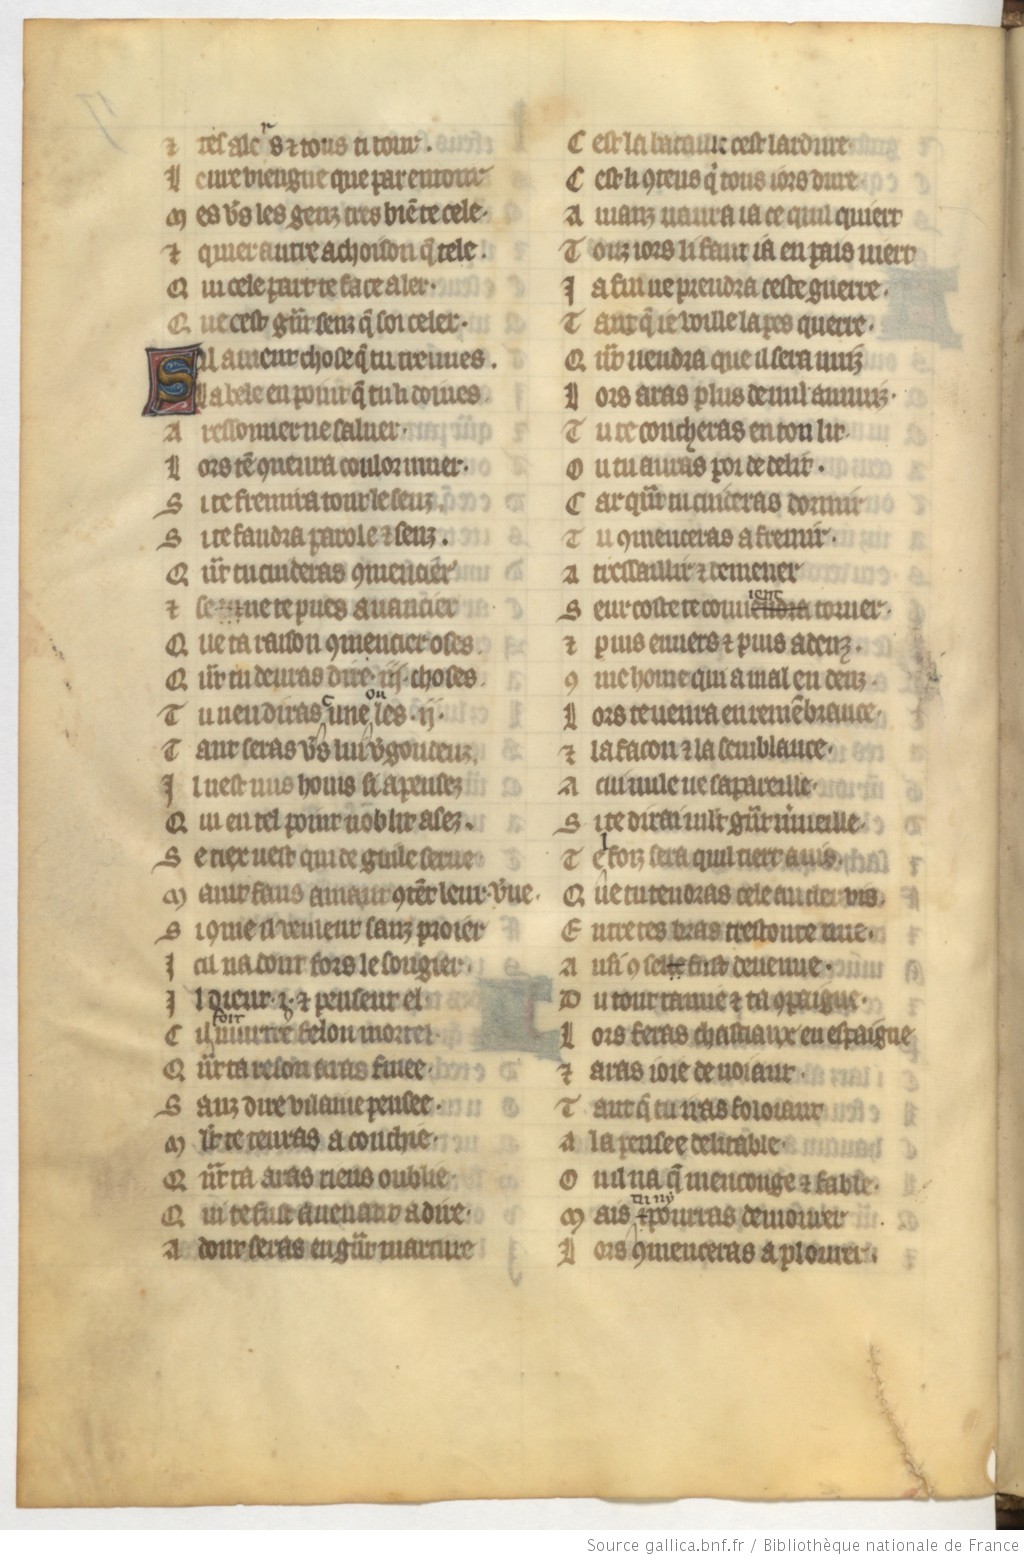 ⁊ tes alers ⁊ tous ti tour.
L eure viengne que par entour
M es vˢ les genz tres biē te cele.
⁊ quier autre achoison q̄ cele.
Q ui cele part te face aler.
Q ue cest gn̄t senz q̄ soi celer.
S il aineur chose q̄ tu treuues.
La bele en point q̄ tu li doiues
A ressonner ne saluer.
L ors te ꝯuenra coulor muer.
S i te fremira tout le senz.
S i te faudra parole ⁊ senz.
Q n̄t tu cuideras ꝯmencier
⁊ se ne te pues auancier
Q ue ta raison ꝯmencier oses.
Q n̄t tu deuras dire .iij. choses.
T u nen diras c une ou les .ij.
T ant seras vˢ lui v̄gondeuz
I l nest nus homs si apensez
Q ui en tel point noblit asez.
S e tiex nest qui de guile serue
M aint faus amant ꝯtēt leur v̄ue.
S i ꝯme il veulent sanz proier
I cil na dont fors le songier.
I l dient .i. ⁊ pensent el
C il soit felon mortel.
Q n̄t ta reson auras finee.
S anz dire vilanie pensee.
M lt te tenras a conchie.
Q n̄t ta aras riens oublie
Q ui te fust auenant a dire.
A dont seras en gn̄t martire
C est la bataille cest lardure
C est li ꝯtens q̄ tous iors dure.
A manz naura ia ce quil quiert
T ouz iors li faut ia en pais niert
J a fin ne prendra ceste guerre.
T ant q̄ ie voille la pes querre.
Q n̄t vendra que il sera nuiz
L ors aras plus de mil annuiz.
T u te coucheras en ton lit
O u tu auras poi de delit.
C ar qn̄t tu cuideras dormir
T u ꝯmenceras a fremir.
A tressaillir ⁊ demener
S eur coste te couuendra ient torner.
⁊ puis enuers ⁊ puis adenz.
ꝯ me home qui a mal en denz.
L ors te uenra en remēbrance.
⁊ la facon ⁊ la semblance.
A cui nule ne sapareille.
S i te dirai mlt gn̄t mͥueille.
T el foiz sera quil tiert auis.
Q ue tu tendras cele au cler vis.
E ntre tes bras trestoute nue.
A usi ꝯ sele fust deuenue.
D u tout ta mie ⁊ ta ꝯpaigne.
L ors feras chastiaux en espaigne
⁊ aras ioie de noiant.
T ant q̄ tu iras foloiant
A la pensee delitable.
O u il na q̄ menconge ⁊ fable.
M ais pourras demourer
L ors ꝯmenceras a plourer.
Source gallica.bnf.fr / Bibliothèque nationale de France